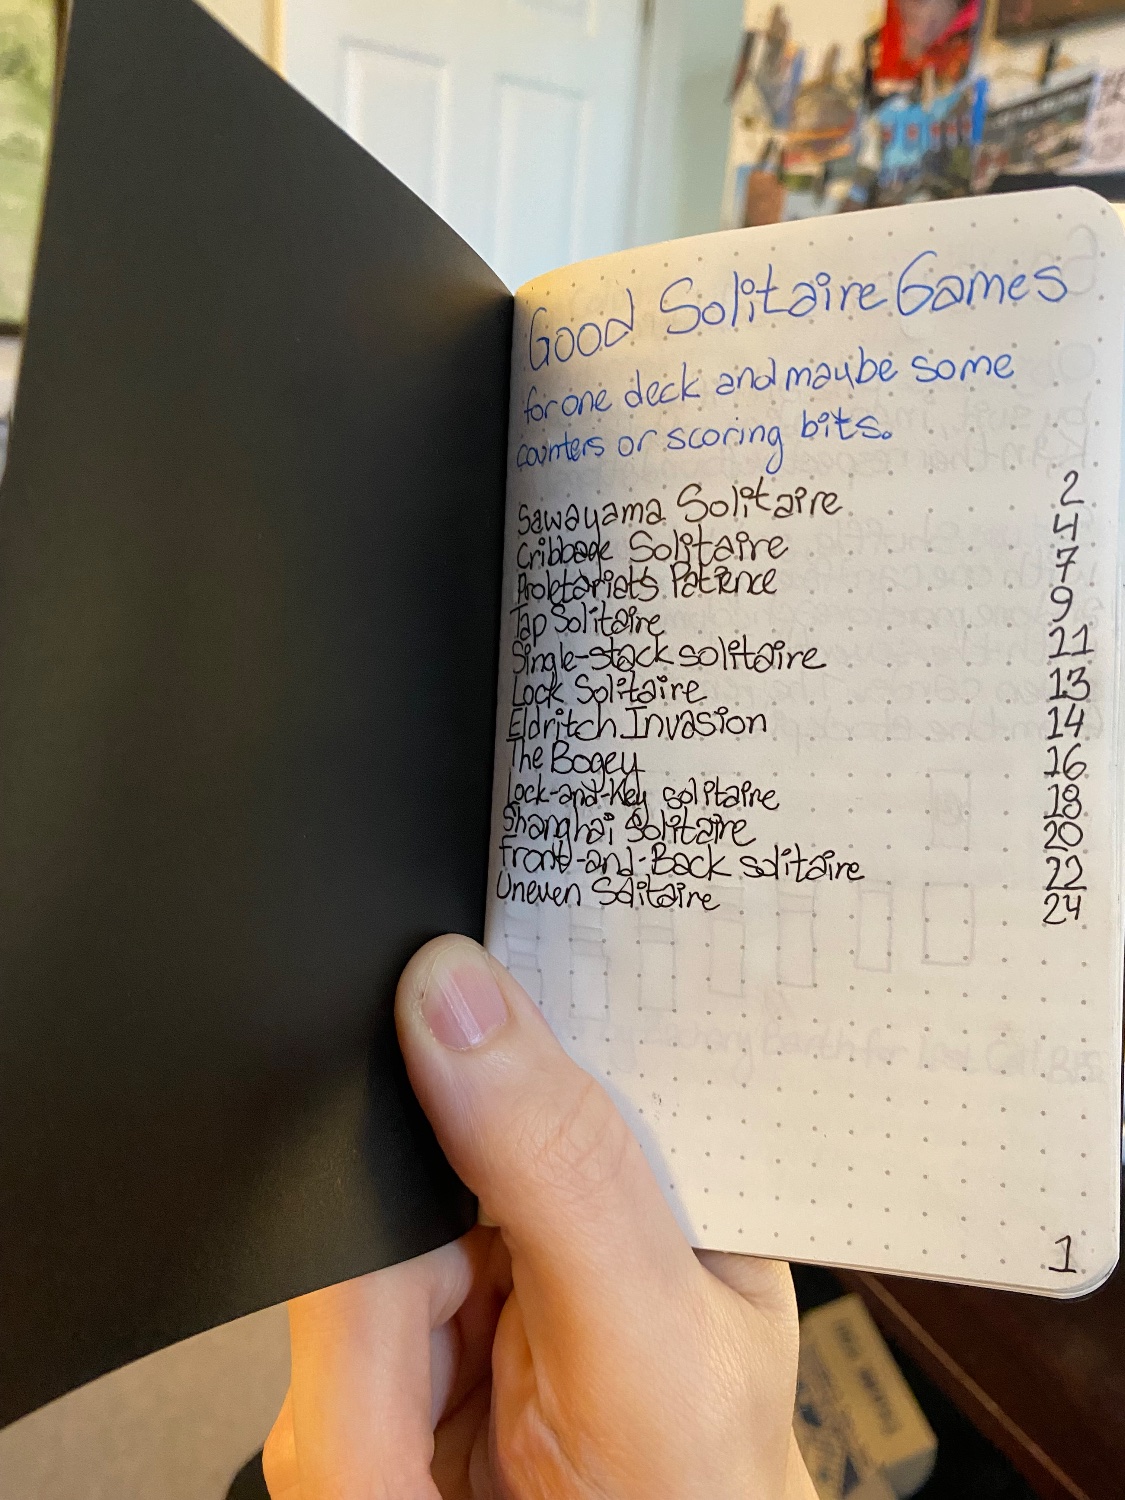 Good Solitaire Games
for one deck and maybe some
counters or scoring bits.
Sawayama Solitaire 2
Cribbage Solitaire 4
Proletariat's Patience 7
Tap Solitaire 9
Single-stack solitaire 11
Lock Solitaire 13
Eldritch Invasion 14
The Bogey 16
Lock-and-Key solitaire 18
Shanghai Solitaire 20
Front-and-Back solitaire 22
Uneven Solitaire 24
1